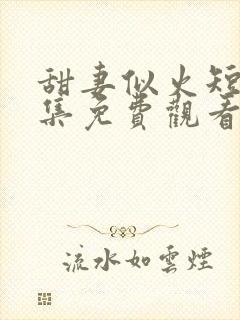 甜妻似火短
集免費觀看
流水如雲煙